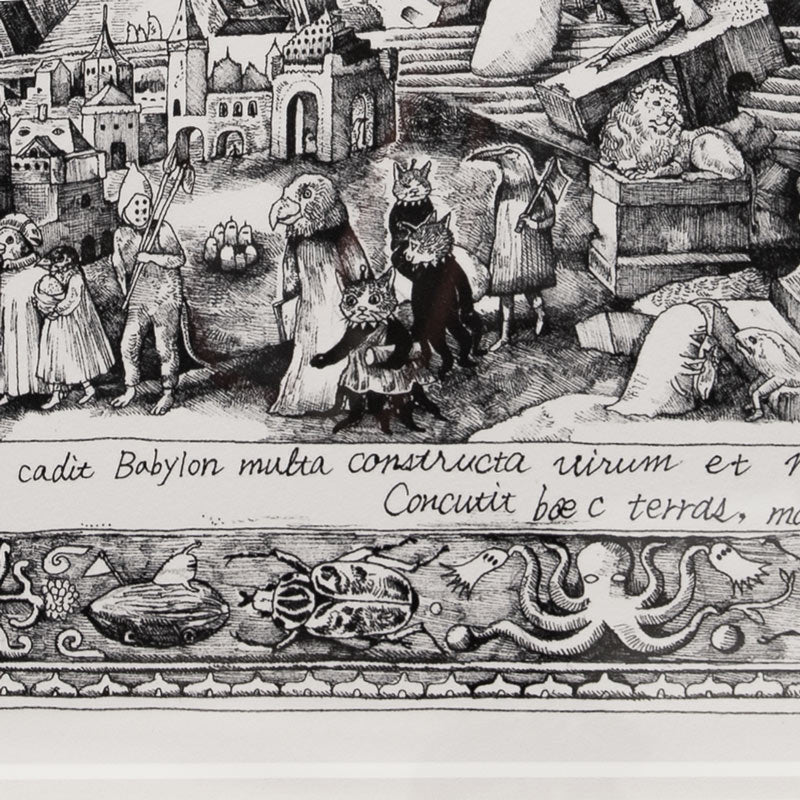 cadit Babylon multa constructa uirum et
Concutit bœc terras, ma